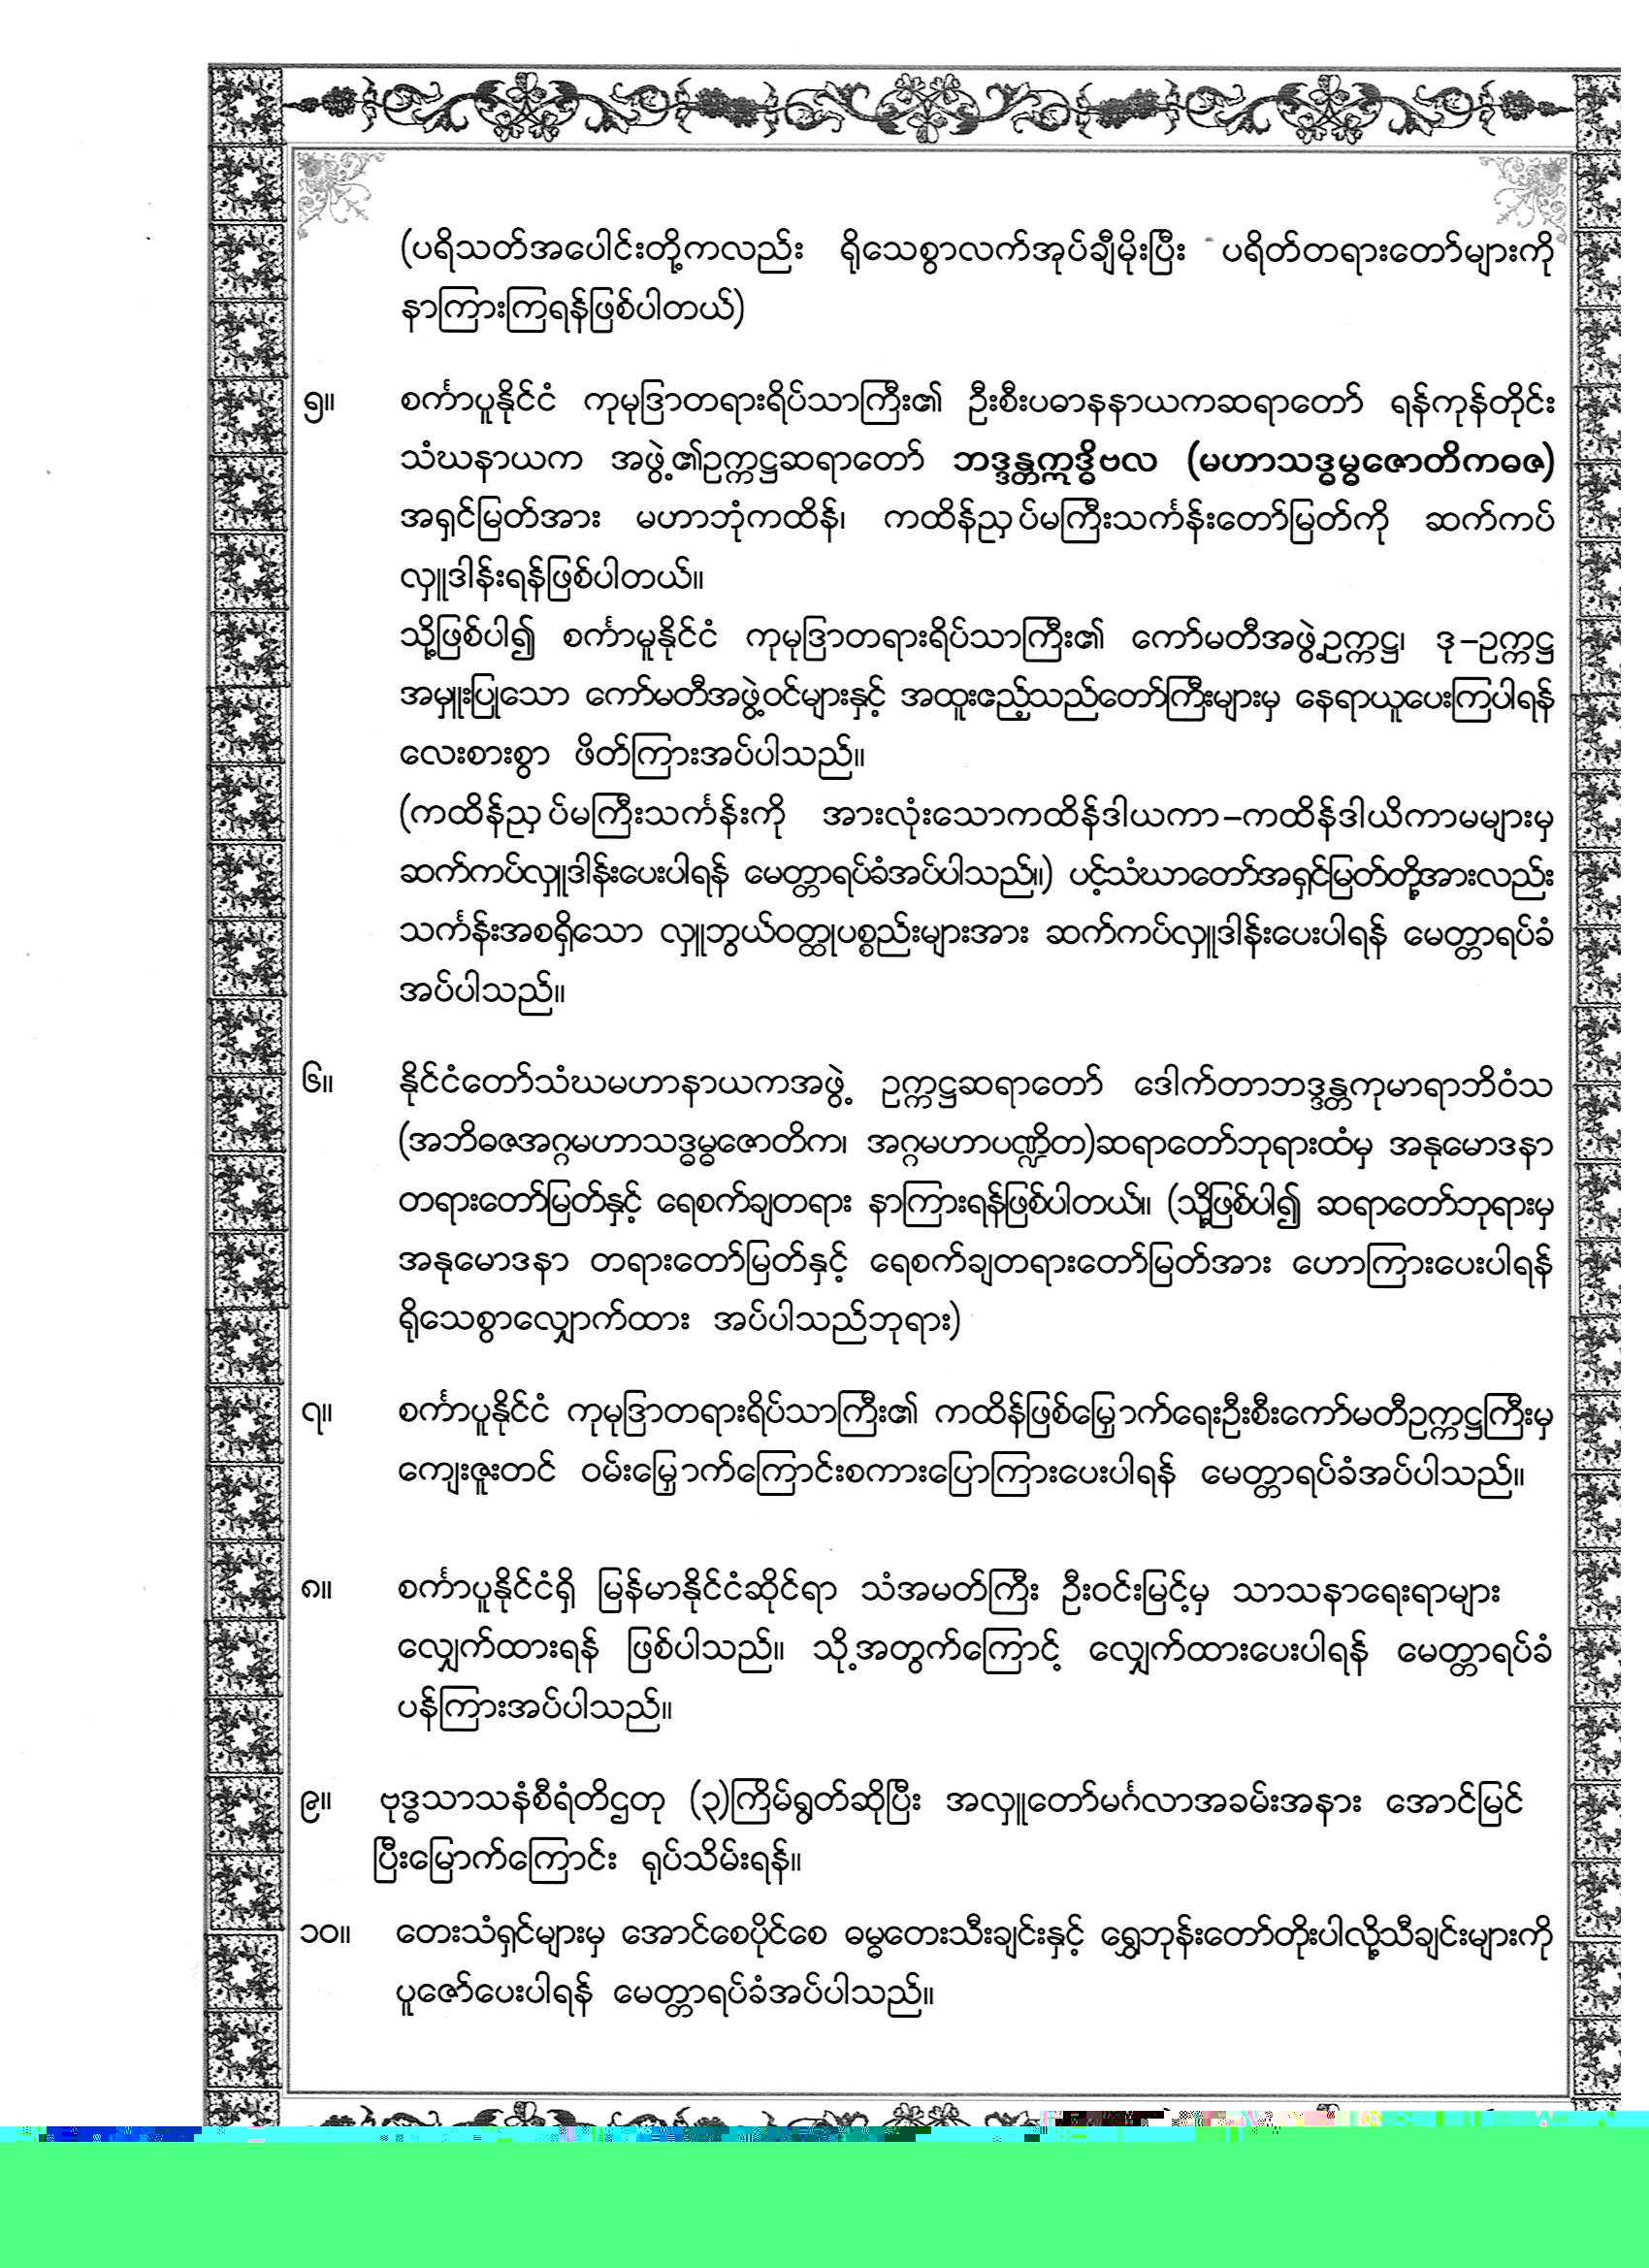 (ပရိသတ်အပေါင်းတို့ကလည်း ရိုသေစွာလက်အုပ်ချီမိုးပြီး ပရိတ်တရားတော်များကို
နာကြားကြရန်ဖြစ်ပါတယ်)
၅။ စင်္ကာပူနိုင်ငံ ကုမုဒြာတရားရိပ်သာကြီး၏ ဦးစီးပဓာနနာယကဆရာတော် ရန်ကုန်တိုင်း
သံဃနာယက အဖွဲ့၏ဥက္ကဋ္ဌဆရာတော် ဘဒ္ဒန္တဣဒ္ဓိဗလ (မဟာသဒ္ဓမ္မဇောတိကဓဇ)
အရှင်မြတ်အား မဟာဘုံကထိန်၊ ကထိန်ညှပ်မကြီးသင်္ကန်းတော်မြတ်ကို ဆက်ကပ်
လှူဒါန်းရန်ဖြစ်ပါတယ်။
သို့ဖြစ်ပါ၍ စင်္ကာမူနိုင်ငံ ကုမုဒြာတရားရိပ်သာကြီး၏ ကော်မတီအဖွဲ့ဥက္ကဋ္ဌ၊ ဒု-ဥက္ကဋ္ဌ
အမှူးပြုသော ကော်မတီအဖွဲ့ဝင်များနှင့် အထူးဧည့်သည်တော်ကြီးများမှ နေရာယူပေးကြပါရန်
လေးစားစွာ ဖိတ်ကြားအပ်ပါသည်။
(ကထိန်ညှပ်မကြီးသင်္ကန်းကို အားလုံးသောကထိန်ဒါယကာ-ကထိန်ဒါယိကာမများမှ
ဆက်ကပ်လှူဒါန်းပေးပါရန် မေတ္တာရပ်ခံအပ်ပါသည်။) ပင့်သံဃာတော်အရှင်မြတ်တို့အားလည်း
သင်္ကန်းအစရှိသော လှူဘွယ်ဝတ္ထုပစ္စည်းများအား ဆက်ကပ်လှူဒါန်းပေးပါရန် မေတ္တာရပ်ခံ
အပ်ပါသည်။
၆။ နိုင်ငံတော်သံဃမဟာနာယကအဖွဲ့ ဥက္ကဋ္ဌဆရာတော် ဒေါက်တာဘဒ္ဒန္တကုမာရာဘိဝံသ
(အဘိဓဇအဂ္ဂမဟာသဒ္ဓမ္မဇောတိက၊ အဂ္ဂမဟာပဏ္ဍိတ)ဆရာတော်ဘုရားထံမှ အနုမောဒနာ
တရားတော်မြတ်နှင့် ရေစက်ချတရား နာကြားရန်ဖြစ်ပါတယ်။ (သို့ဖြစ်ပါ၍ ဆရာတော်ဘုရားမှ
အနုမောဒနာ တရားတော်မြတ်နှင့် ရေစက်ချတရားတော်မြတ်အား ဟောကြားပေးပါရန်
ရိုသေစွာလျှောက်ထား အပ်ပါသည်ဘုရား)
၇။ စင်္ကာပူနိုင်ငံ ကုမုဒြာတရားရိပ်သာကြီး၏ ကထိန်ဖြစ်မြှောက်ရေးဦးစီးကော်မတီဥက္ကဋ္ဌကြီးမှ
ကျေးဇူးတင် ဝမ်းမြှောက်ကြောင်းစကားပြောကြားပေးပါရန် မေတ္တာရပ်ခံအပ်ပါသည်။
၈။ စင်္ကာပူနိုင်ငံရှိ မြန်မာနိုင်ငံဆိုင်ရာ သံအမတ်ကြီး ဦးဝင်းမြင့်မှ သာသနာရေးရာများ
လျှေက်ထားရန် ဖြစ်ပါသည်။ သို့အတွက်ကြောင့် လျှေက်ထားပေးပါရန် မေတ္တာရပ်ခံ
ပန်ကြားအပ်ပါသည်။
၉။ ဗုဒ္ဓသာသနံစီရံတိဌတု (၃)ကြိမ်ရွတ်ဆိုပြီး အလှူတော်မင်္ဂလာအခမ်းအနား အောင်မြင်
ပြီးမြောက်ကြောင်း ရုပ်သိမ်းရန်။
၁၀။ တေးသံရှင်များမှ အောင်စေပိုင်စေ ဓမ္မတေးသီးချင်းနှင့် ရွှေဘုန်းတော်တိုးပါလို့သီချင်းများကို
ပူဇော်ပေးပါရန် မေတ္တာရပ်ခံအပ်ပါသည်။